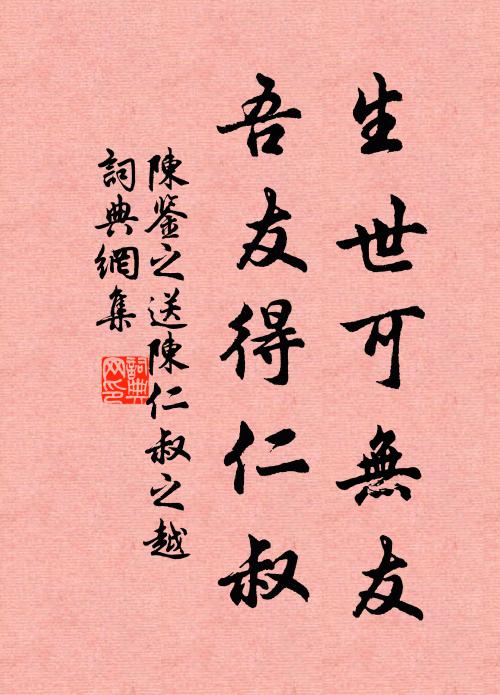 生世可無友
吾友得仁叔
陳鉴之送陳仁叔之越
詞典網集
詞典网印